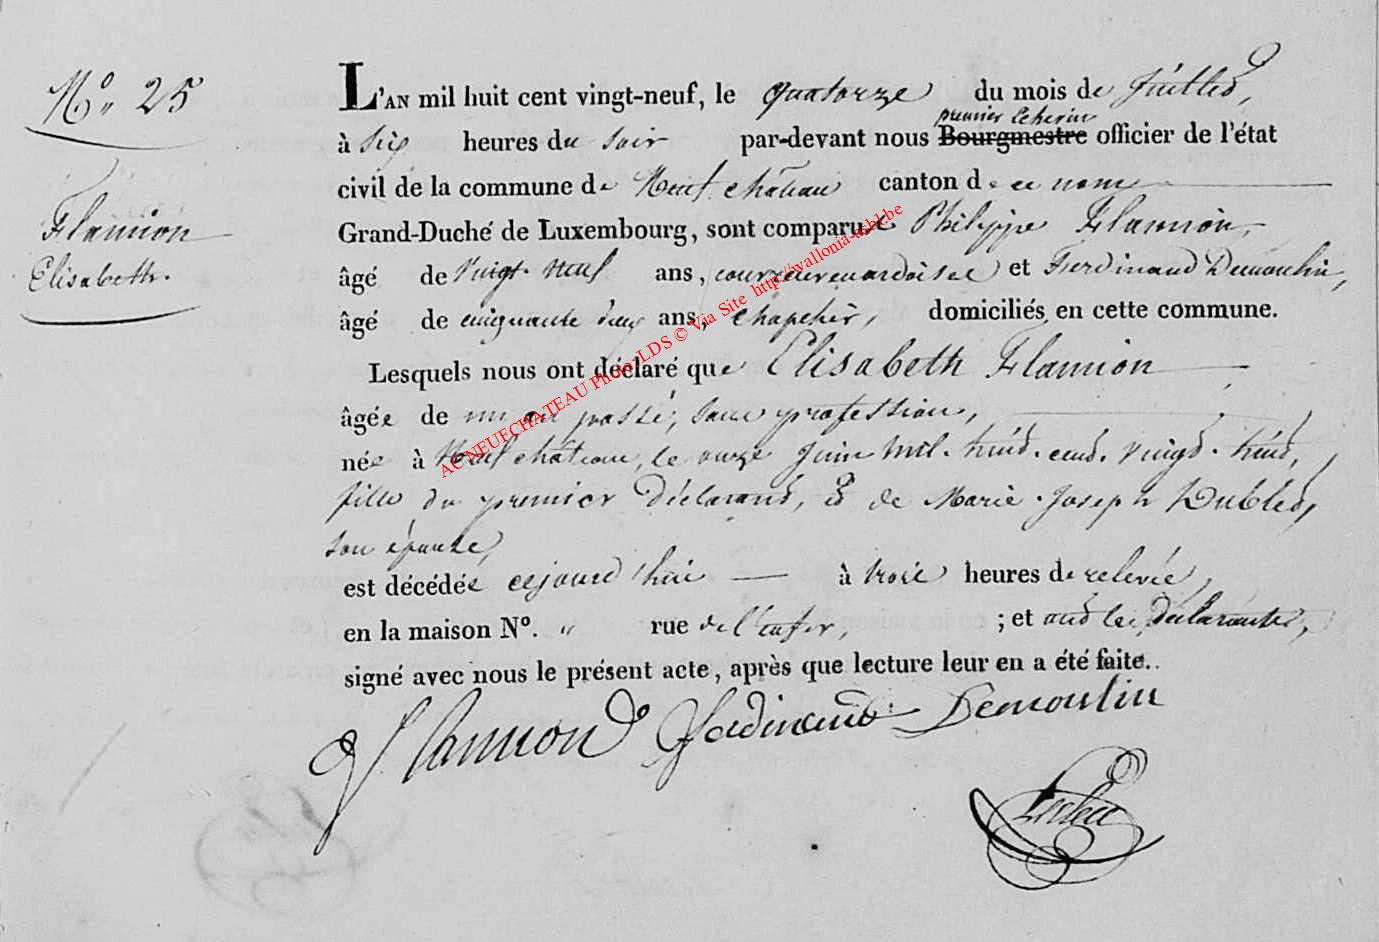 N.° 25
Flamion
Elisabeth.
L'AN mil huit cent vingt-neuf, le quatorze du mois de Juillet,
premier Echevin
à six heures du soir par-devant nous Bourgmestre officier de l'état
civil de la commune de Neufchâteau canton de ce nom
Grand-Duché de Luxembourg, sont comparus Philippe Flamion,
âgé de vingt-neuf ans, couvreur en ardoises et Ferdinand Demoulin,
âgé de cinquante deux ans, chapelier, domiciliés en cette commune.
Lesquels nous ont déclaré que Elisabeth Flamion
âgée de un an passé, sans profession,
née à Neufchâteau, le onze Juin mil-huit-cent-vingt-huit,
fille du premier Déclarant, et de Marie-Joseph Dubled,
son épouse,
est décédée cejourd'hui à trois heures de relevée,
en la maison N°. " rue de l'enfer, ; et ont les Déclarants,
signé avec nous le présent acte, après que lecture leur en a été faite.
Flamion Ferdinand Demoulin
AC NEUFCHATEAU Photo LDS © Via Site http://wallonia-asbl.be